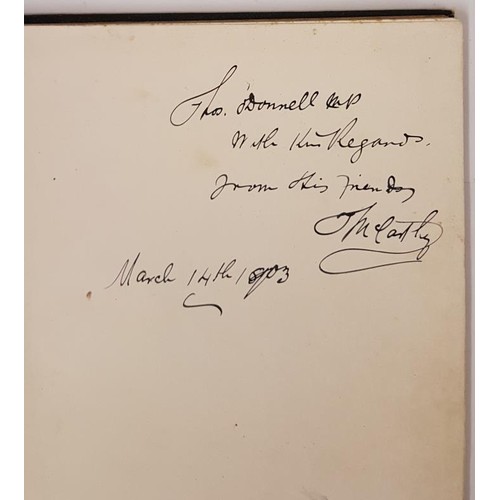 Thos. O'Donnell MP
With Kind Regards.
From His Friend
J McCarthy
March 14th 1903